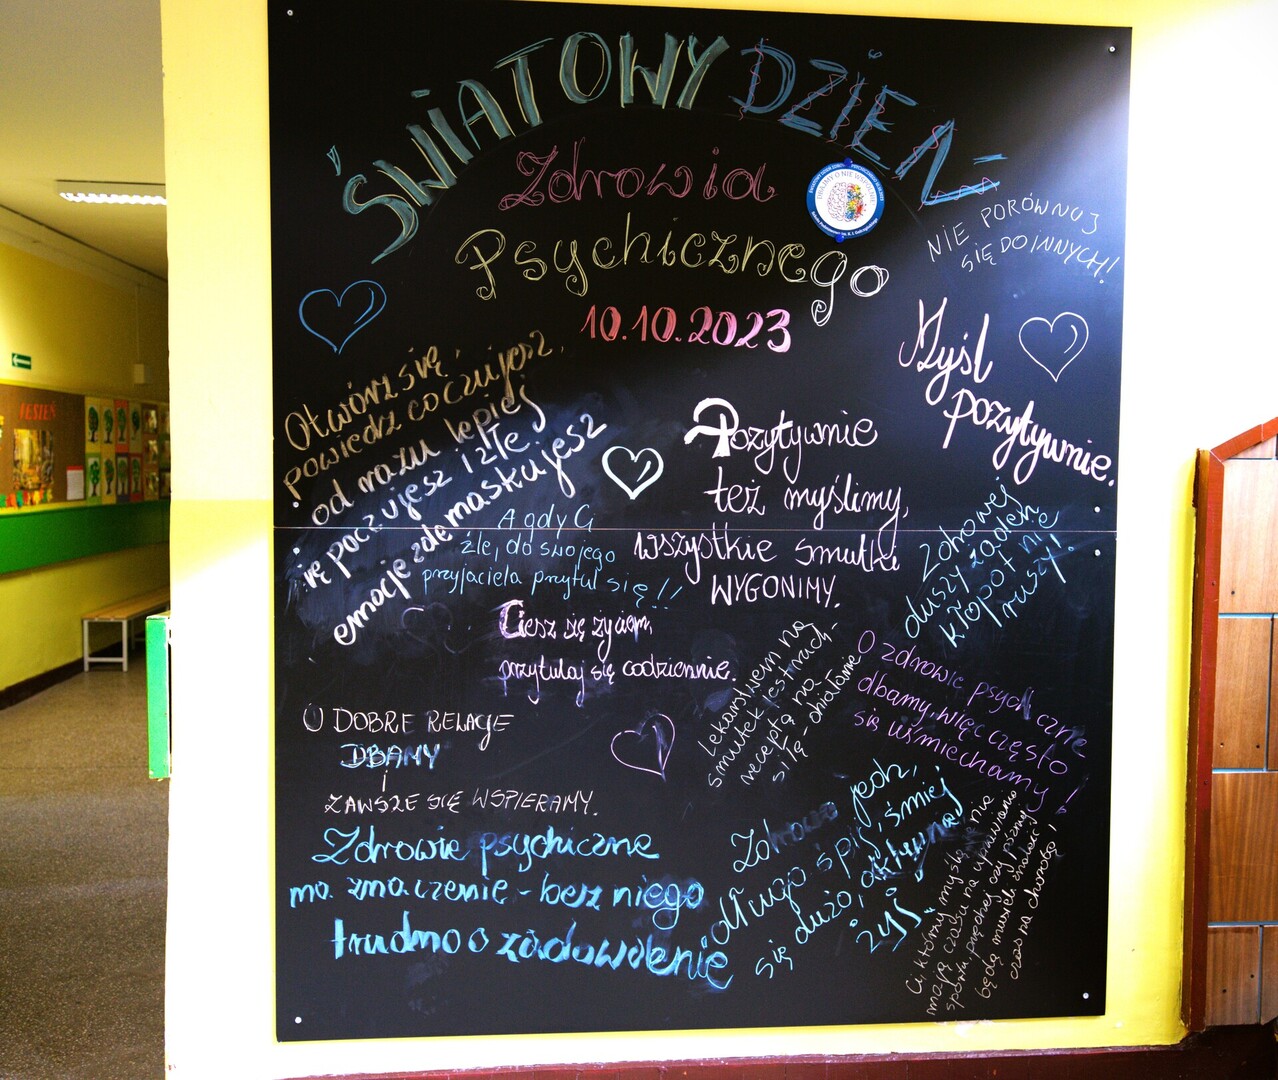 ŚWIATOWY DZIEŃ
Zdrowia
Psychicznego
10.10.2023
NIE PORÓWNUJ
SIĘ DO INNYCH!
Myśl
pozytywnie.
Otwórz się,
powiedz co czujesz,
od razu lepiej
się poczujesz i złe
emocje zdemaskujesz
Pozytywnie
też myślimy,
wszystkie smutki
WYGONIMY.
A gdy Ci
źle, do swojego
przyjaciela przytul się!!
zdrowej
duszy żaden
kłopot nie
ruszy!
Ciesz się życiem,
przytulaj się codziennie.
Lekarstwem na
smutek jest ruch-
receptą na
siłę - działanie
O zdrowie psychiczne
dbamy, więc często
się uśmiechamy!
O DOBRE RELACJE
DBAMY
i
ZAWSZE SIĘ WSPIERAMY.
Zdrowie psychiczne
ma znaczenie - bez niego
trudno o zadowolenie
Zdrowo jedz,
długo śpij, śmiej
się dużo, aktywnie
żyj.
Ci, którzy myślą, że nie
mają czasu na uprawianie
sportu prędzej czy później
będą musieli znaleźć
czas na chorobę!
JESIEŃ